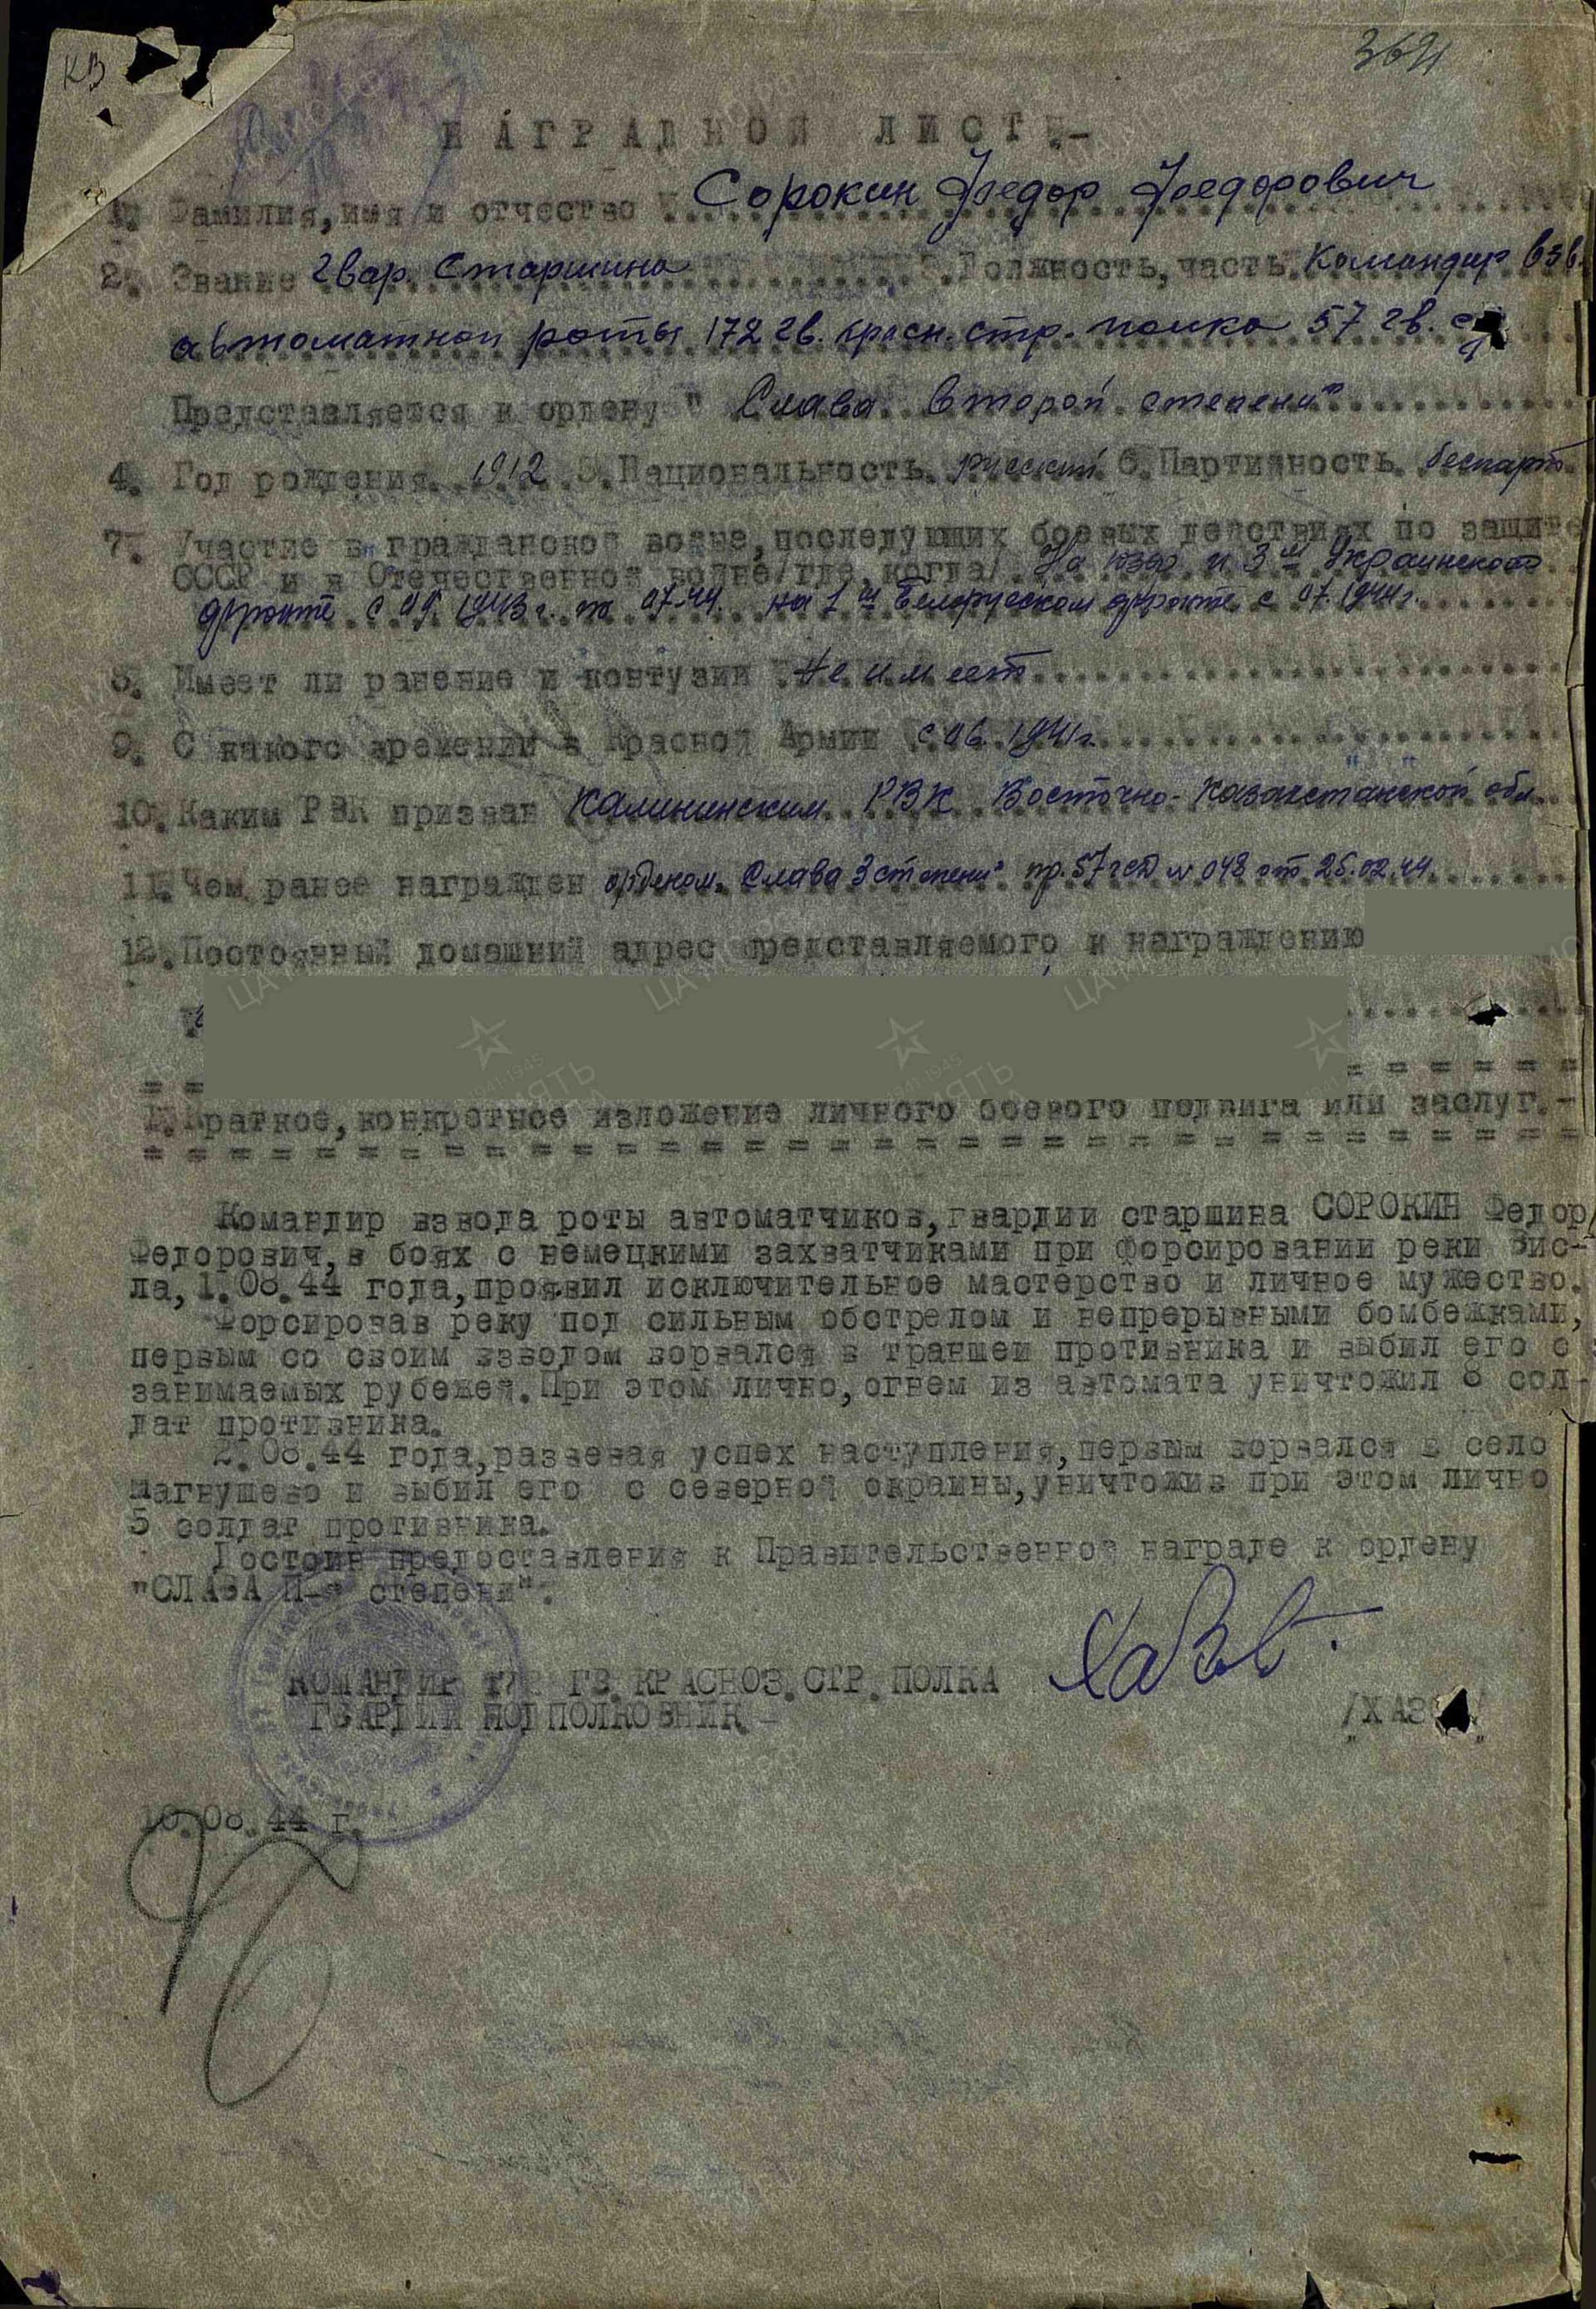 КВ
369
НАГРАДНОЙ ЛИСТ.-
1. Фамилия, имя и отчество Сорокин Федор Федорович
2. Звание гвар. Старшина 3. Должность, часть Командир взв.
автоматной роты 172 гв. красн. стр. полка 57 гв. сд
Представляется к ордену "Слава второй степени"
4. Год рождения 1912 5. Национальность русский 6. Партийность беспарт.
7. Участие в гражданской войне, последующих боевых действиях по защите
СССР и в Отечественной войне /где, когда/ На юзф и 3м Украинском
фронте с 09. 1943 г. по 07-44. на 1м Белорусском фронте с 07. 1944 г.
8. Имеет ли ранение и контузии Не имеет
9. С какого времени в Красной Армии с 06. 1941 г.
10. Каким РВК призван Калининским РВК Восточно-Казахстанской обл.
11. Чем ранее награжден орденом "Слава 3 степени" пр. 57 гсд № 048 от 25.02.44.
12. Постоянный домашний адрес представляемого к награждению
I. Краткое, конкретное изложение личного боевого подвига или заслуг.-
Командир взвода роты автоматчиков, гвардии старшина СОРОКИН Федор
Федорович, в боях с немецкими захватчиками при форсировании реки Вис-
ла, 1.08.44 года, проявил исключительное мастерство и личное мужество.
Форсировав реку под сильным обстрелом и непрерывными бомбежками,
первым со своим взводом ворвался в траншеи противника и выбил его с
занимаемых рубежей. При этом лично, огнем из автомата уничтожил 8 сол-
дат противника.
2.08.44 года, развевая успех наступления, первым ворвался в село
Магнушево и выбил его с северной окраины, уничтожив при этом лично
5 солдат противника.
Достоин предоставления к Правительственной награде к ордену
"СЛАВА II-й степени".
КОМАНДИР 172 ГВ. КРАСНОЗ. СТР. ПОЛКА
ГВАРДИИ ПОДПОЛКОВНИК -
/ХАЗ
10.08.44 г.